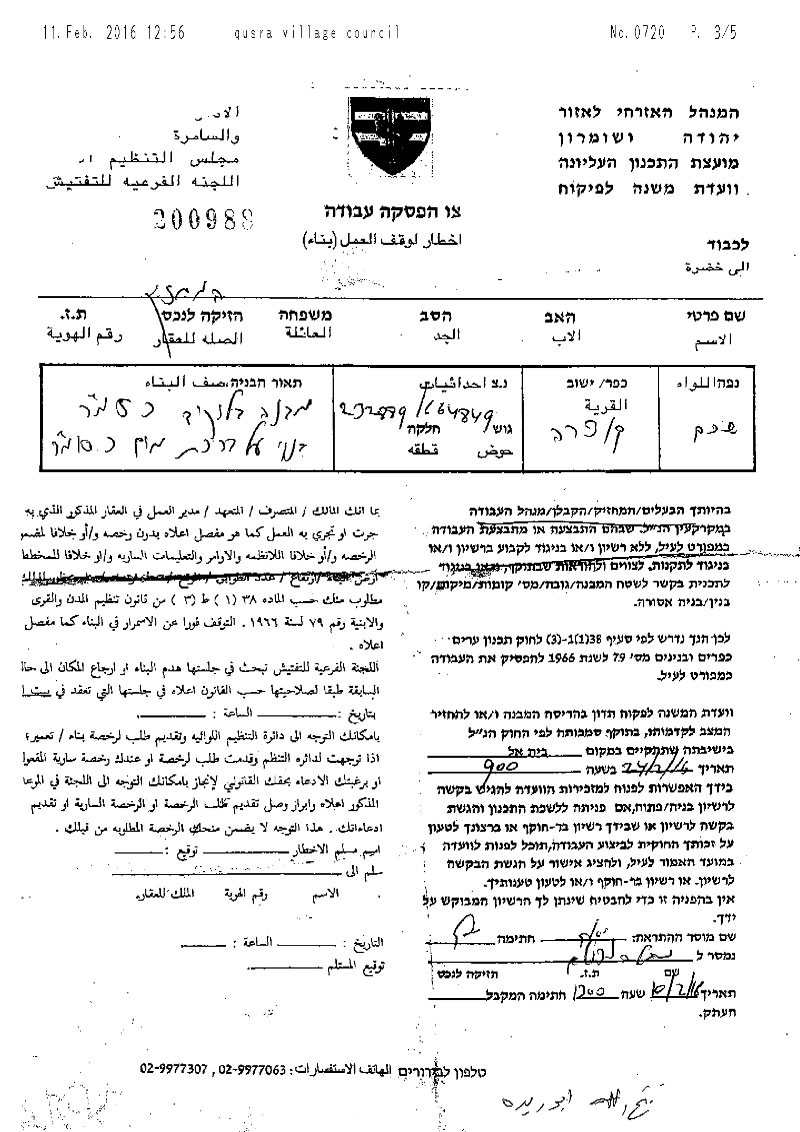 11. Feb. 2016 12:56 qusra village council No. 0720 P. 3/5
המנהל האזרחי לאזור
יהודה ושומרון
מועצת התכנון העליונה
וועדת משנה לפיקוח
والسامرة
مجلس التنظيم
اللجنه الفرعيه للتفتيش
200988
צו הפסקה עבודה
اخطار لوقف العمل (بناء)
לכבוד
الى حضرة
שם פרטי האב הסב משפחה הזיקה לנכס ת.ז.
الاسم الاب الجد العائلة الصله للعقار رقم الهوية
נפה اللواء כפר/ ישוב נ.צ احداثيات תאור הבניה, صف البناء
القرية
שכם
גוש חלקה
حوض قطقه
בהיותך הבעלים/המחזיק/הקבלן/מנהל העבודה
במקרקעין הנ״ל. שבהם התבצעה או מתבצעת העבודה
כמפורט לעיל, ללא רשיון ו/או בניגוד לקבוע ברשיון ו/או
בניגוד לתקנות. לצווים ולהוראות שבתוקף,
לתכנית בקשר לשטח המבנה/גובה/מס׳ קומות/מיקום/קו
בנין/בניה אסורה.
לכן הנך נדרש לפי סעיף 38(1)(1-3) לחוק תכנון ערים
כפרים ובנינים מס׳ 79 לשנת 1966 להפסיק את העבודה
כמפורט לעיל.
וועדת המשנה לפקוח תדון בהריסה המבנה ו/או להחזיר
המצב לקדמותו, בתוקף סמכותה לפי החוק הנ״ל
בישיבתה שתתקיים במקום בית אל
תאריך 24/2/16 בשעה 900
בידך האפשרות לפנות למזכירות הוועדה להגיש בקשה
לרשיון בניה/פתוח, אם פניתה ללשכת התכנון והגשת
בקשה לרשיון או שבידך רשיון בר-תוקף או ברצונך לטעון
על זכותך החוקית לביצוע העבודה, תוכל לפנות לוועדה
במועד האמור לעיל, ולהציג אישור על הגשת הבקשה
לרשיון. או רשיון בר-תוקף ו/או לטעון טענותיך.
אין בהפניה זו כדי להבטיח שינתן לך הרשיון המבוקש על
ידך.
שם מוסר ההתראה: חתימה
נמסר ל
שם ת.ז. הזיקה לנכס
תאריך 10/2/16 שעה 1200 חתימה המקבל
העתק.
بما انك المالك / المتصرف / المتعهد / مدير العمل في العقار المذكور الذي به
جرت او تجري به العمل كما هو مفصل اعلاه بدون رخصه و/أو خلافا
الرخصه و/أو خلافا للانظمه والاوامر والتعليمات الساريه و/أو خلافا للمخطط
مطلوب منك حسب الماده ٣٨ (١) ط (٣) من قانون تنظيم المدن والقرى
والابنية رقم ٧٩ لسنة ١٩٦٦. التوقف فورا عن الاسمرار في البناء كما مفصل
اعلاه.
اللجنه الفرعية للتفتيش تبحث في جلستها هدم البناء او ارجاع المكان الى
السابقة طبقا لصلاحيتها حسب القانون اعلاه في جلستها التي تعقد في
بتاريخ: الساعة:
بامكانك التوجه الى دائرة التنظيم اللوائيه وتقديم طلب لرخصة بناء / تعمير؛
اذا توجهت لدائره التنظم وقدمت طلب لرخصة او عندك رخصة سارية
او برغبتك الادعاء بحقك القانوني لإنجاز بامكانك التوجه الى اللجنة في
المذكور اعلاه وابراز وصل تقديم طلب الرخصة او الرخصة السارية او تقديم
ادعاءاتك. هذا التوجه لا يضمن منحك الرخصة المطلوبه من قبلك.
اسم مسلم الاخطار توقيع:
سلم الى
الاسم رقم الهوية الملك للعقار
التاريخ: الساعة:
توقيع المستلم
טלפון לבירורים الهاتف الاستفسارات: 02-9977063, 02-9977307